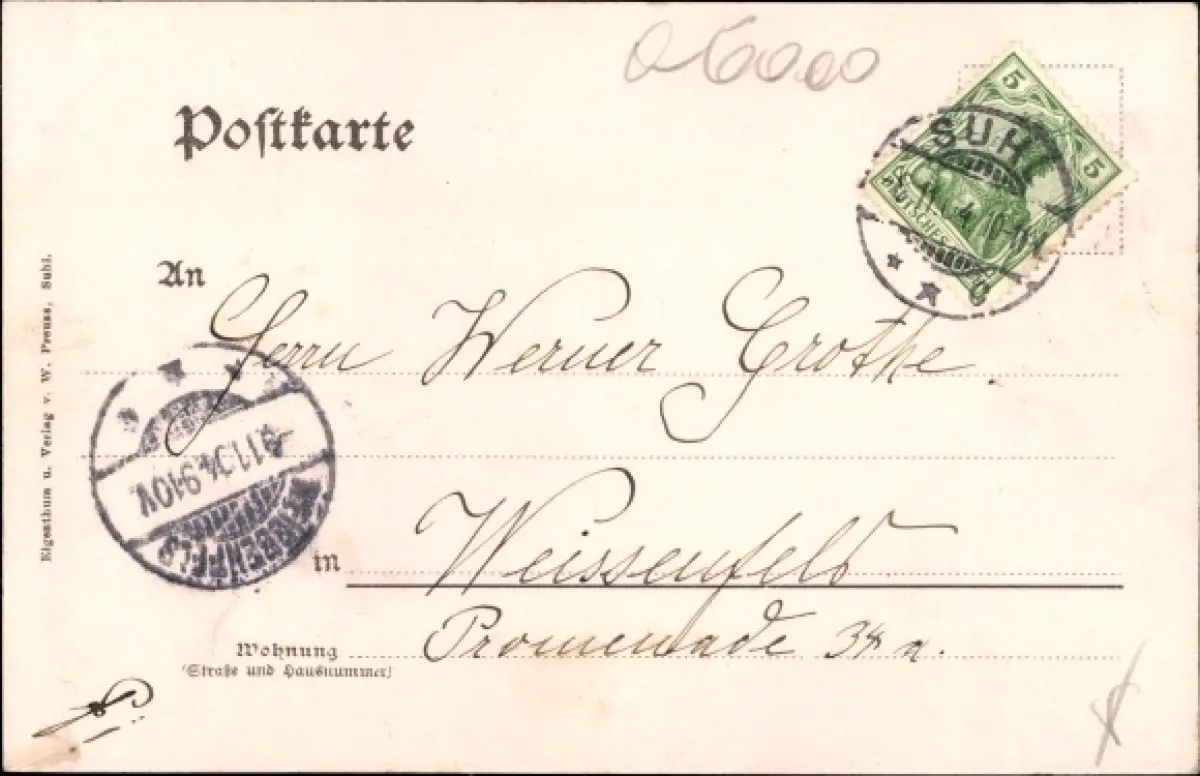 06000
Postkarte
5
5
DEUTSCHES
SUHL
An
Herrn Werner Grothe.
9.11.04. 9-10V.
WEISSENFELS
in
Weissenfels
Wohnung
Promenade 34 a.
(Straße und Hausnummer)
Eigenthum u. Verlag v. W. Preuss, Suhl.